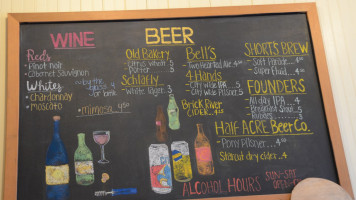 WINE
Reds
- Pinot noir
- Cabernet Sauvignon
Whites
- Chardonnay
- moscato
- mimosa
BEER
Old Bakery
- Citrus wheat 5
- Porter 5
Schlafly
- White lager 5
Bell's
- Two Hearted Ale 4.00
4 Hands
- City wide IPA 5
- City wide Pilsner 5
Brick River
CIDER 5
SHORT'S BREW
- Soft Parade 4
- Super Fluid 4
FOUNDERS
- All day IPA 4
- Breakfast Stout
HALF ACRE Beer Co.
- Pony Pilsner 4
- Starcut dry cider 4
ALCOHOL HOURS SUN-SAT